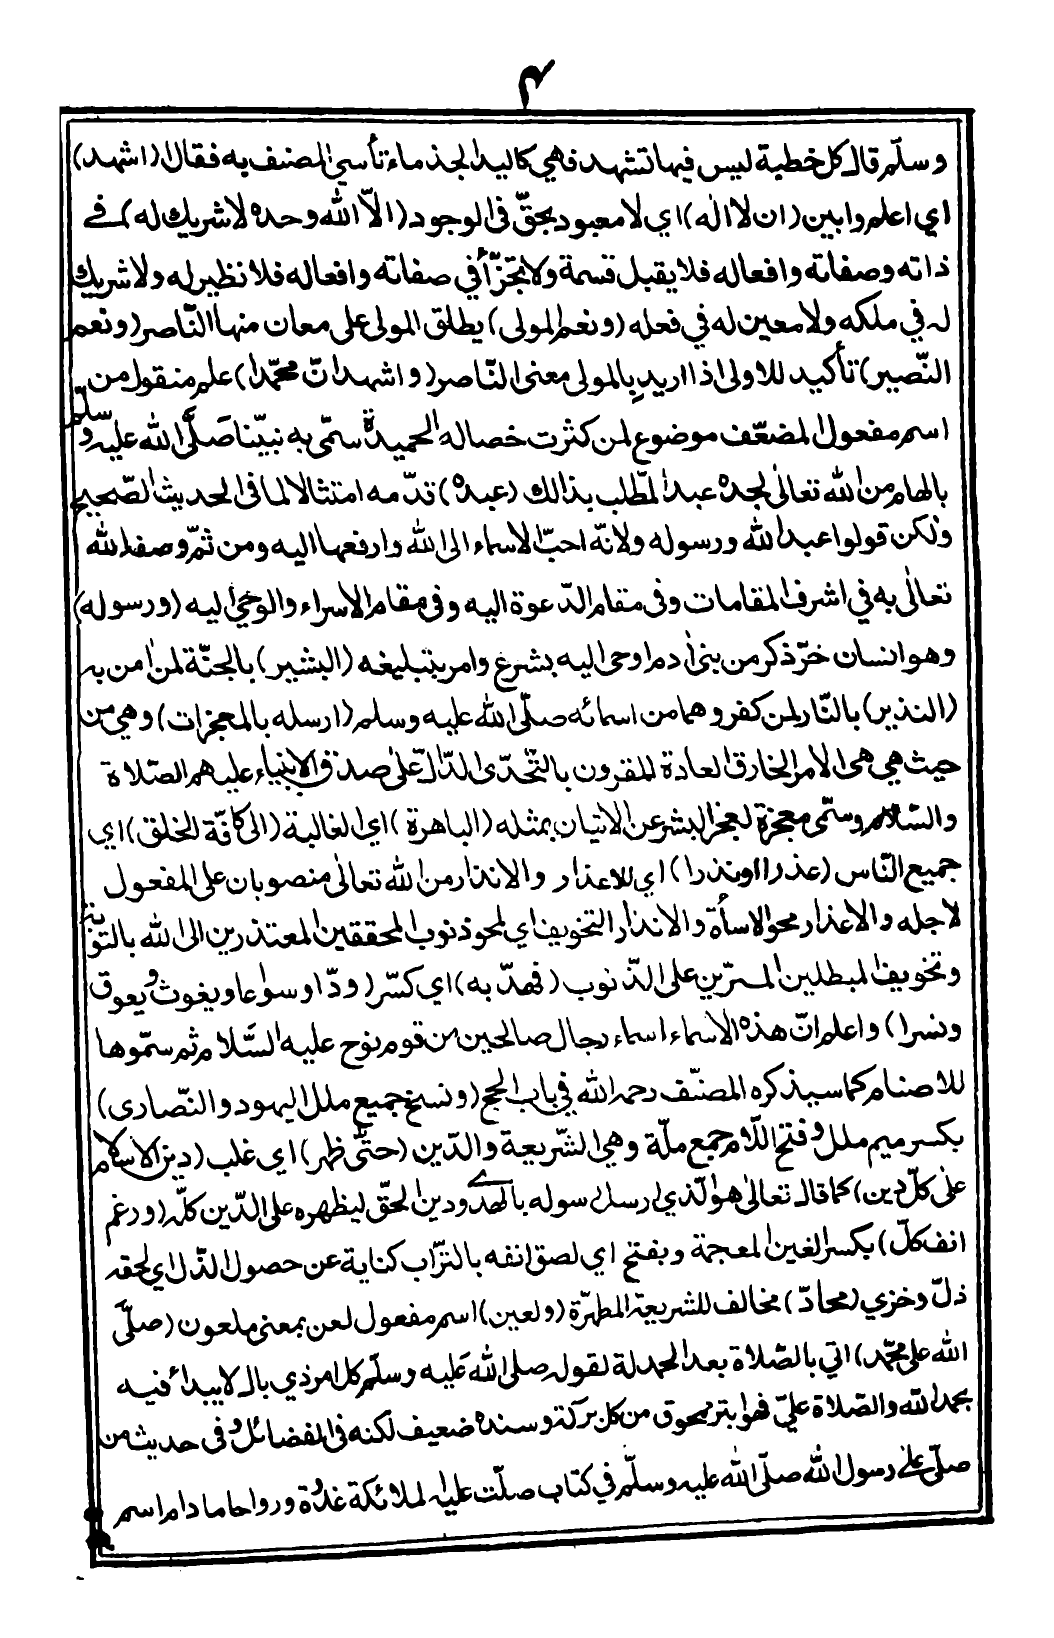 ٣
وسلّم قال كل خطبة ليس فيها تشهد فهي كاليد الجذماء تأسي المصنف به فقال (اشهد)
اي اعلم وابين (ان لا اله) اي لا معبود بحقّ في الوجود (الّا الله وحده لا شريك له) في
ذاته وصفاته وافعاله فلا يقبل قسمة ولا تجزّأ في صفاته وافعاله فلا نظير له ولا شريك
له في ملكه ولا معين له في فعله (ونعم المولى) يطلق المولى على معان منها النّاصر (ونعم
النّصير) تأكيد للاولى اذا اريد بالمولى معنى النّاصر (واشهد انّ محمّدا) علم منقول من
اسم مفعول المضعّف موضوع لمن كثرت خصاله الحميدة سمّي به نبيّنا صَلَّى الله عليه وسلّم
بالهام من الله تعالى لجده عبد المطّلب بذالك (عبده) قدّمه امتثالا لما في الحديث الصّحيح
ولكن قولوا عبد الله ورسوله ولانّه احبّ الاسماء الى الله وارفعها اليه ومن ثمّ وصفه الله
تعالى به في اشرف المقامات وفى مقام الدّعوة اليه وفى مقام الاسراء والوحي اليه (ورسوله)
وهو انسان حرّ ذكر من بنى أدم اوحى اليه بشرع وامر بتبليغه (البشير) بالجنّة لمن أمن به
(النذير) بالنّار لمن كفر وهما من اسمائه صلّى الله عليه وسلم (ارسله بالمعجزات) وهي من
حيث هي هى الامر الخارق العادة المقرون بالتّحدّى الدّالّ على صدق الانبياء عليهم الصّلاة
والسّلام وسمّى معجزة لعجز البشر عن الاتيان بمثله (الباهرة) اي الغالبة (الى كافّة الخلق) اي
جميع النّاس (عذرا او نذرا) اي للاعذار والانذار من الله تعالى منصوبان على المفعول
لاجله والاعذار محو الاسأة والانذار التخويف اي لمحو ذنوب المحققين المعتذرين الى الله بالتوبة
وتخويف المبطلين المسرّين على الذّنوب (فهدّ به) اي كسّر (ودّا وسواعا ويغوث ويعوق
ونسرا) واعلم انّ هذه الاسماء اسماء رجال صالحين من قوم نوح عليه السَّلام ثم سمّوها
للاصنام كما سيذكره المصنّف رحمه الله في باب الحج (ونسخ جميع ملل اليهود والنّصارى)
بكسر ميم ملل وفتح اللّام جمع ملّة وهي الشّريعة والدّين (حتّى ظهر) اي غلب (دين الاسلام
على كلّ دين) كما قال تعالى هو الّذي ارسل رسوله بالهدى ودين الحقّ ليظهره على الدّين كلّه (ورغم
انف كلّ) بكسر الغين المعجمة وبفتح اي لصق انفه بالتّراب كناية عن حصول الذّل اي لحقه
ذلّ وخزي (محادّ) مخالف للشريعة المطهّرة (ولعين) اسم مفعول لعن بمعنى ملعون (صلّى
الله على محمّد) اتي بالصّلاة بعد الحمدلة لقوله صلى الله عَليه وسلّم كل امر ذي بال لا يبدأ فيه
بحمد الله والصّلاة عليّ فهو ابتر ممحوق من كل بركة وسنده ضعيف لكنه في الفضائل وفى حديث من
صلّى على رسول الله صلّى الله عليه وسلّم في كتاب صلّت عليه الملائكة غدوة ورواحا ما دام اسم